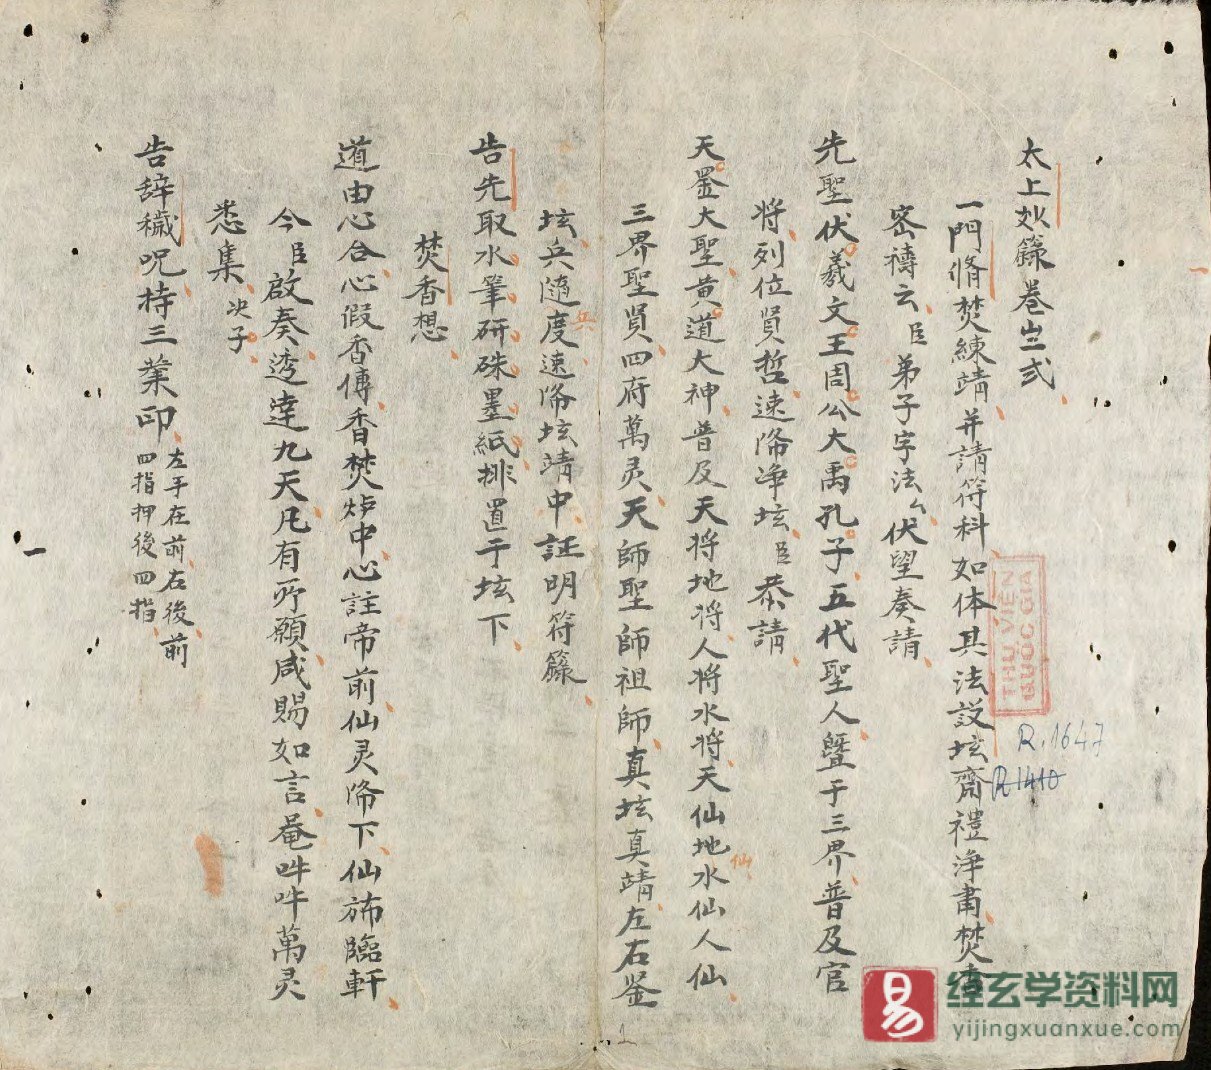 太上玅籙卷𠀧弐
一門脩焚練靖并請符科如体其法設坛齋禮淨肅焚香
密禱云臣弟子字法厶伏望奏請
先聖伏羲文王周公大禹孔子五代聖人曁于三界普及官
將列位賢哲速降净坛臣恭請
天罡大聖黄道大神普及天將地將人將水將天仙地水仙人仙
仙
三界聖賢四府萬灵天師聖師祖師真坛真靖左右鉴
坛兵隨度速降坛靖中証明符籙
兵
告先取水筆研硃墨紙排置于坛下
焚香想
道由心合心假香傳香焚炉中心註帝前仙灵降下仙斾臨軒
今臣啟奏透達九天凡有所願咸賜如言菴吽吽萬灵
悉集决子
告辞穢呪持三業印左手在前右後前
四指押後四指
一
THƯ VIỆN
QUỐC GIA
R.1647
R1410
1
易
经玄学资料网
yijingxuanxue.com